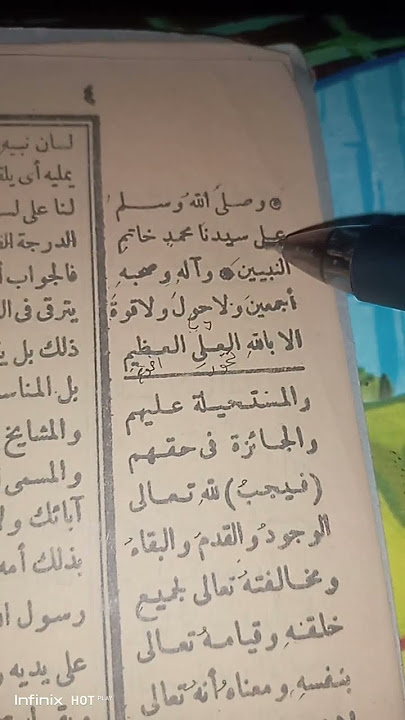 ٤
وصلى الله وسلم
على سيدنا محمد خاتم
النبيين وآله وصحبه
أجمعين ولا حول ولا قوة
الا بالله العلي العظيم
والمستحيلة عليهم
والجائزة فى حقهم
(فيجب) لله تعالى
الوجود والقدم والبقاء
ومخالفته تعالى لجميع
خلقه وقيامه تعالى
بنفسه ومعناه أنه تعالى
لسان نبيه
يمليه أى
لنا على
الدرجة
فالجواب
يترقى فى
ذلك بل
بل
والمشايخ
والمسمى
آبائك
بذلك
رسول
على يديه
Infinix HOT PLAY